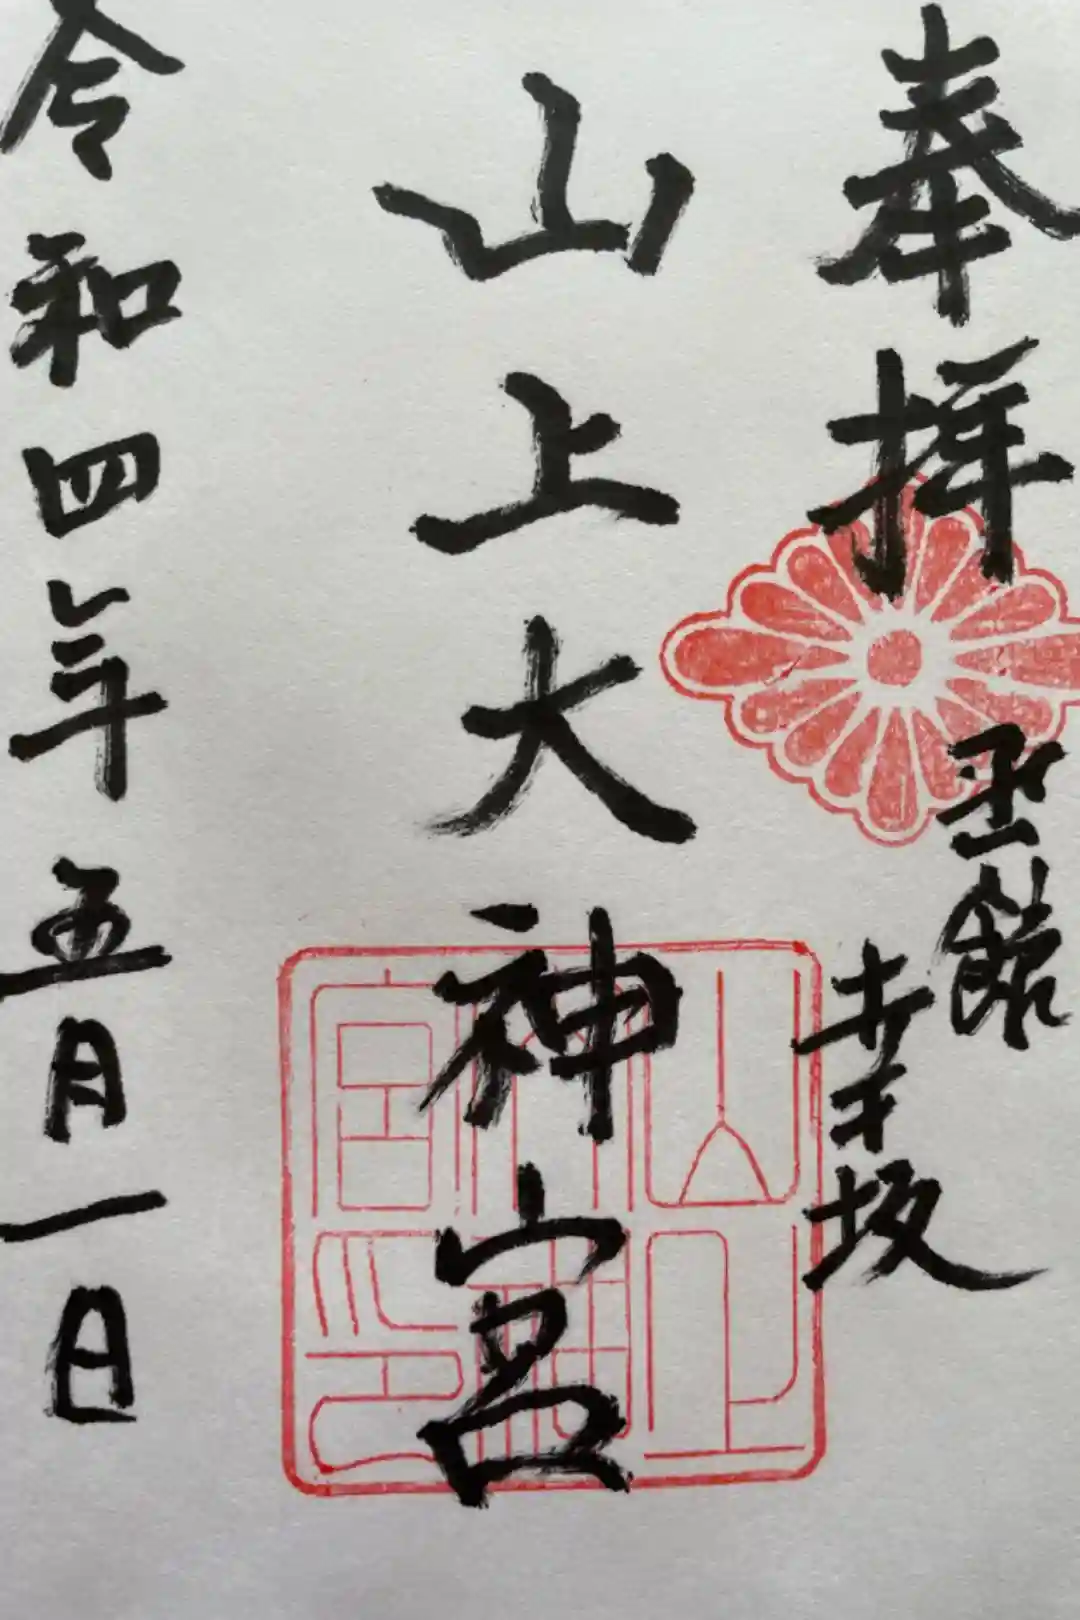 奉拝
函館
幸坂
山上大神宮
令和四年五月一日